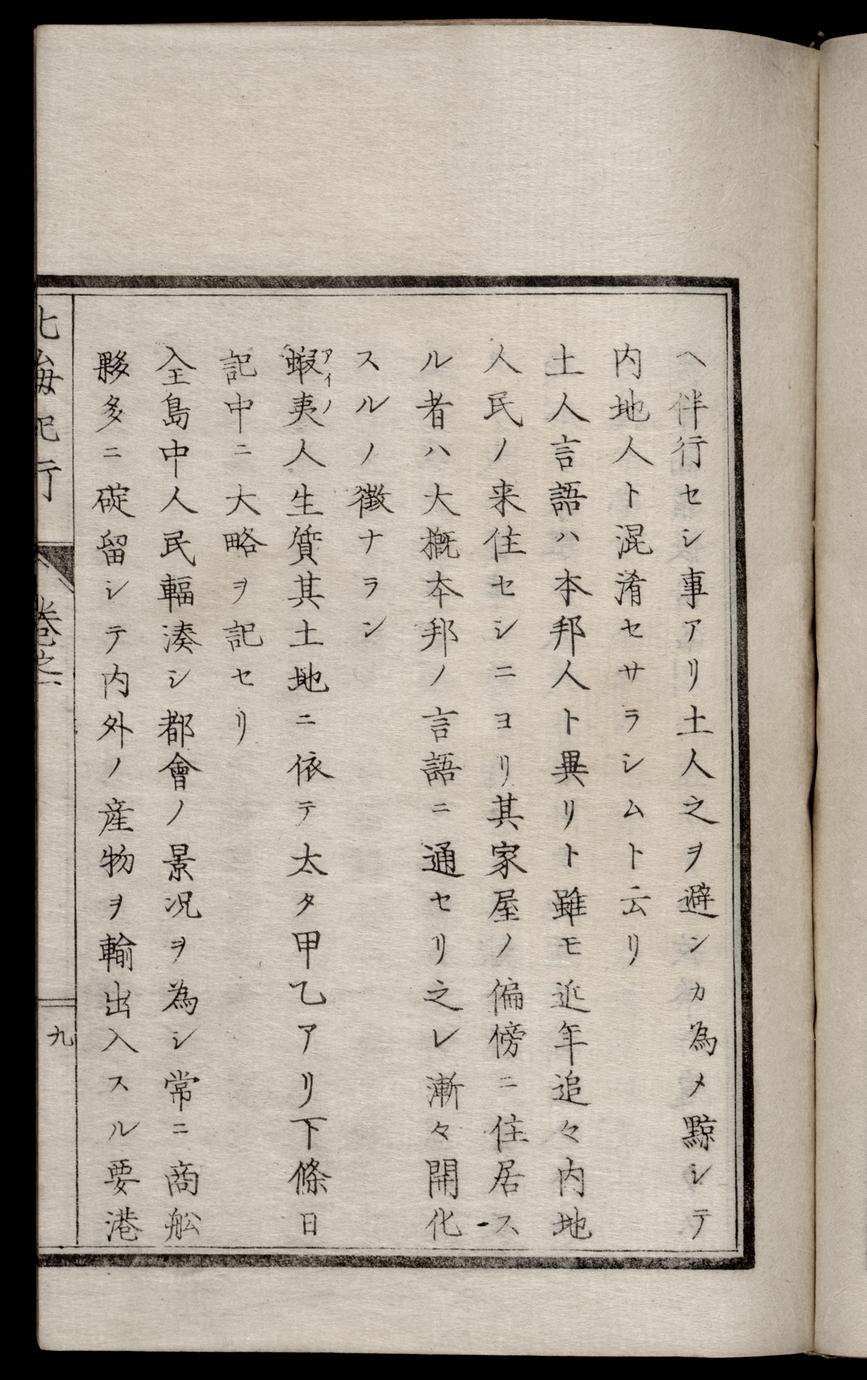 ヘ伴行セシ事アリ土人之ヲ避ンカ為メ黥シテ
内地人ト混淆セサラシムト云リ
土人言語ハ本邦人ト異リト雖モ近年追々内地
人民ノ来住セシニヨリ其家屋ノ偏傍ニ住居ス
ル者ハ大概本邦ノ言語ニ通セリ之レ漸々開化
スルノ徴ナラン
アイノ
蝦夷人生質其土地ニ依テ太タ甲乙アリ下條日
記中ニ大略ヲ記セリ
全島中人民輻湊シ都會ノ景况ヲ為シ常ニ商舩
夥多ニ碇留シテ内外ノ産物ヲ輸出入スル要港
北海紀行
巻之一
九